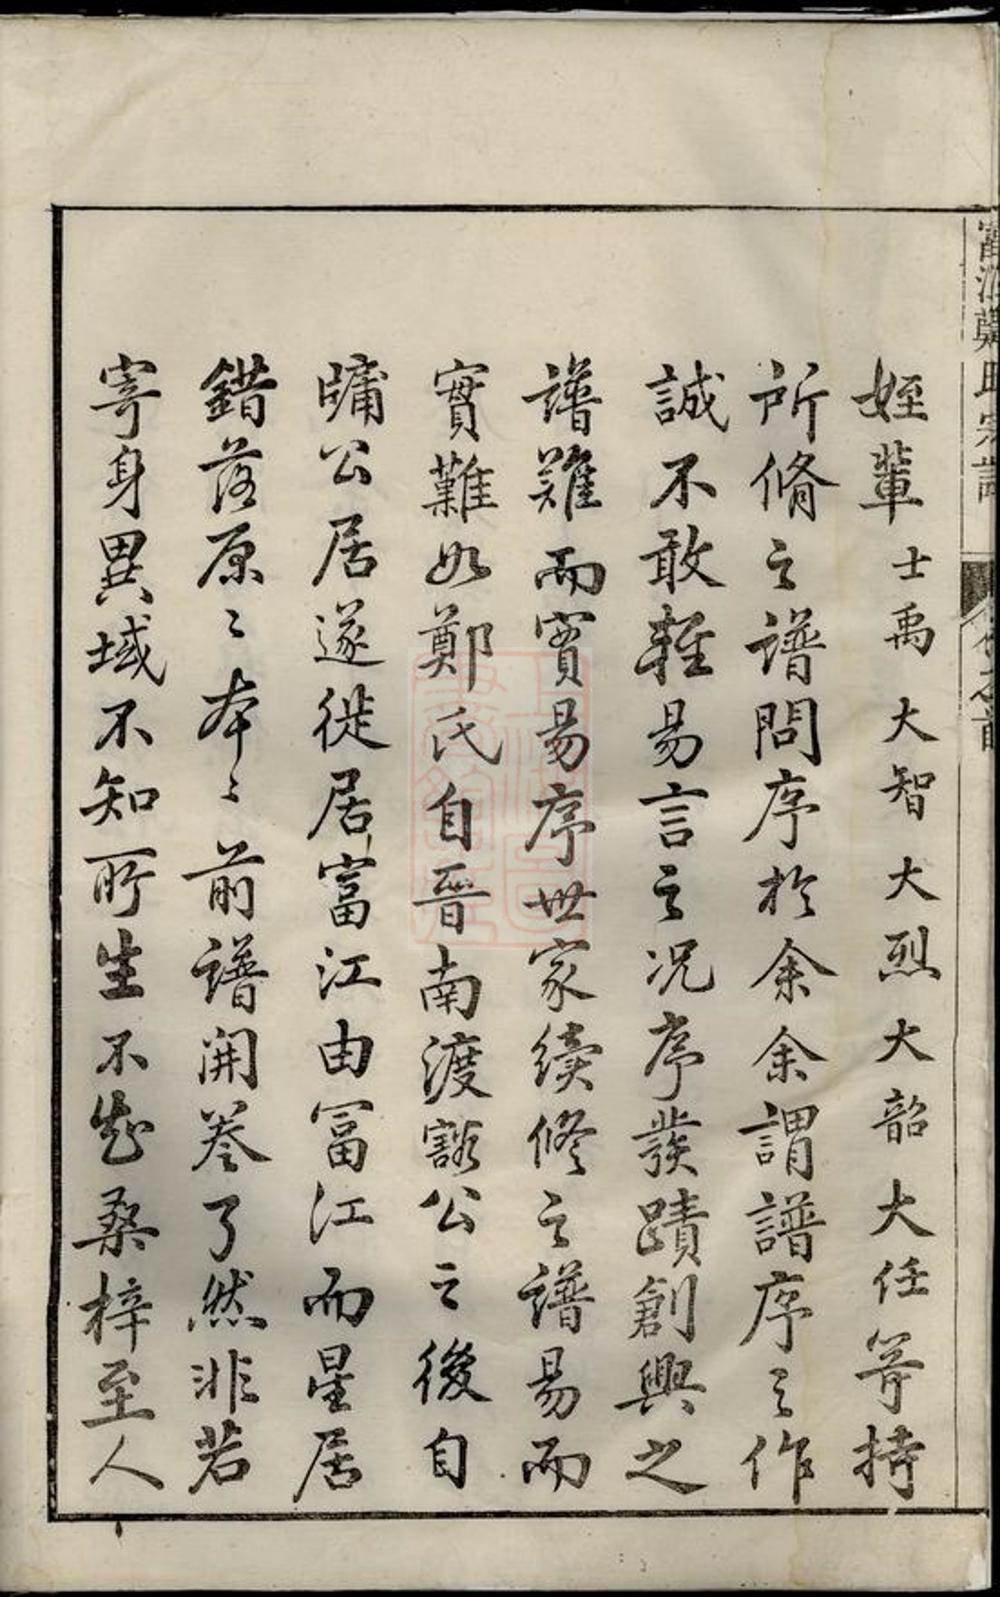 富江鄭氏宗譜
卷之首
姪輩士禹大智大烈大韶大任等持
所脩之譜問序於余余謂譜序之作
誠不敢輕易言之况序發蹟創興之
譜難而實易序世家續修之譜易而
實難如鄭氏自晉南渡豁公之後自
牗公居遂徙居富江由冨江而星居
錯落原〻本〻前譜開卷了然非若
寄身異域不知所生不知桑梓至人